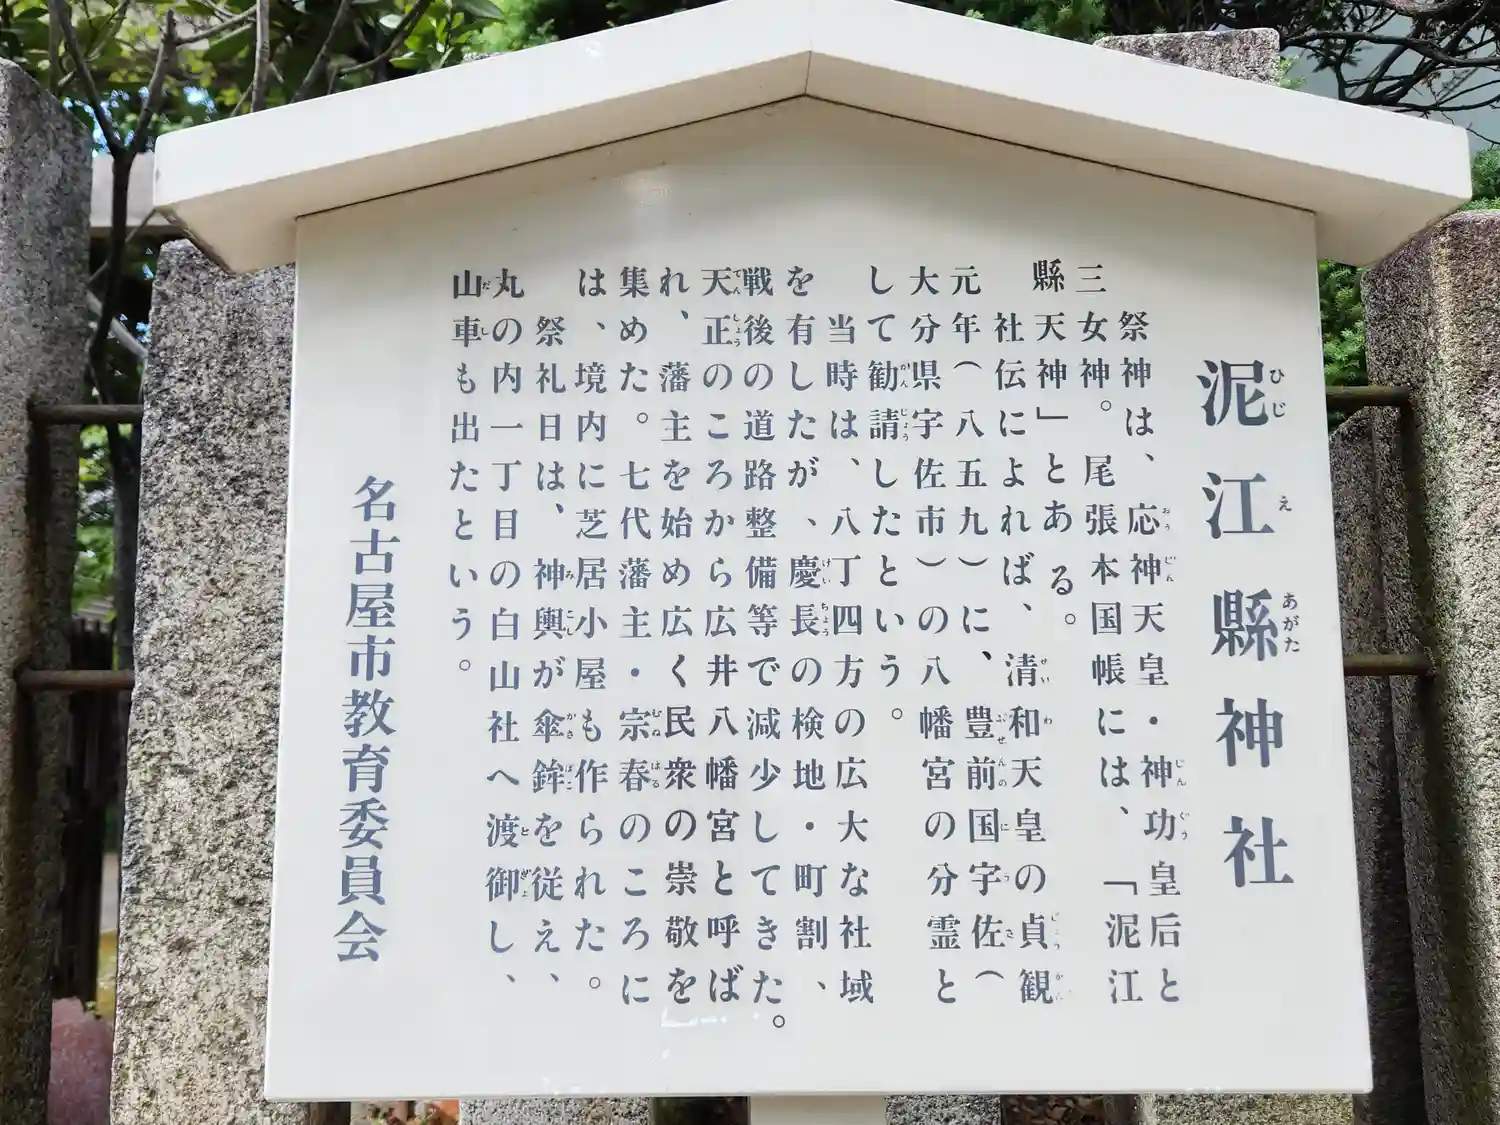 泥江縣神社
祭神は、応神天皇・神功皇后と
三女神。尾張本国帳には、「泥江
縣天神」とある。
社伝によれば、清和天皇の貞観
元年(八五九)に、豊前国宇佐(
大分県宇佐市)の八幡宮の分霊と
して勧請したという。
当時は、八丁四方の広大な社域
を有したが、慶長の検地・町割、
戦後の道路整備等で減少してきた。
天正のころから広井八幡宮と呼ば
れ、藩主を始め広く民衆の崇敬を
集めた。七代藩主・宗春のころに
は、境内に芝居小屋も作られた。
祭礼日は、神輿が傘鉾を従え、
丸の内一丁目の白山社へ渡御し、
山車も出たという。
名古屋市教育委員会